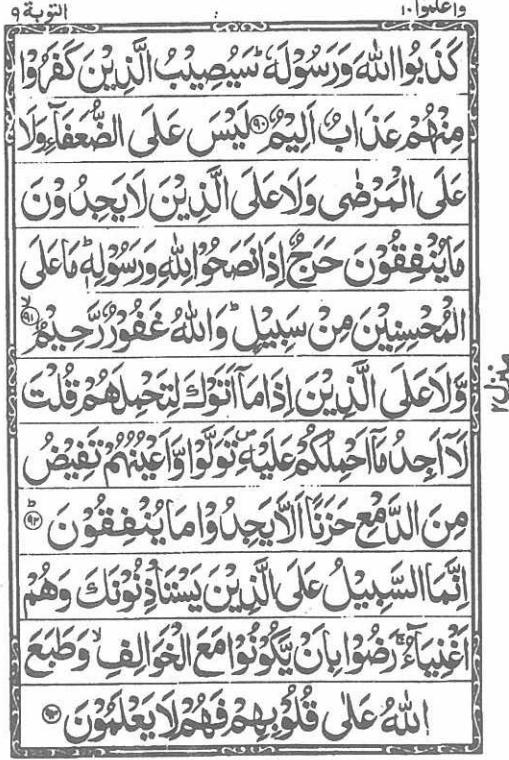 واعلموا ۱۰
التوبة ۹
كَذَبُوا اللّٰهَ وَرَسُوْلَهٗ ؕ سَيُصِيْبُ الَّذِيْنَ كَفَرُوْا
مِنْهُمْ عَذَابٌ اَلِيْمٌ ۹۰ لَيْسَ عَلَى الضُّعَفَآءِ وَلَا
عَلَى الْمَرْضٰى وَلَا عَلَى الَّذِيْنَ لَا يَجِدُوْنَ
مَا يُنْفِقُوْنَ حَرَجٌ اِذَا نَصَحُوْا لِلّٰهِ وَرَسُوْلِهٖ ؕ مَا عَلَى
الْمُحْسِنِيْنَ مِنْ سَبِيْلٍ ؕ وَاللّٰهُ غَفُوْرٌ رَّحِيْمٌ ۙ ۹۱
وَّلَا عَلَى الَّذِيْنَ اِذَا مَآ اَتَوْكَ لِتَحْمِلَهُمْ قُلْتَ
لَآ اَجِدُ مَآ اَحْمِلُكُمْ عَلَيْهِ ۪ تَوَلَّوْا وَّاَعْيُنُهُمْ تَفِيْضُ
مِنَ الدَّمْعِ حَزَنًا اَلَّا يَجِدُوْا مَا يُنْفِقُوْنَ ؕ ۹۲
اِنَّمَا السَّبِيْلُ عَلَى الَّذِيْنَ يَسْتَاْذِنُوْنَكَ وَهُمْ
اَغْنِيَآءُ ۚ رَضُوْا بِاَنْ يَّكُوْنُوْا مَعَ الْخَوَالِفِ ۙ وَطَبَعَ
اللّٰهُ عَلٰى قُلُوْبِهِمْ فَهُمْ لَا يَعْلَمُوْنَ ۹۳
منزل ۲